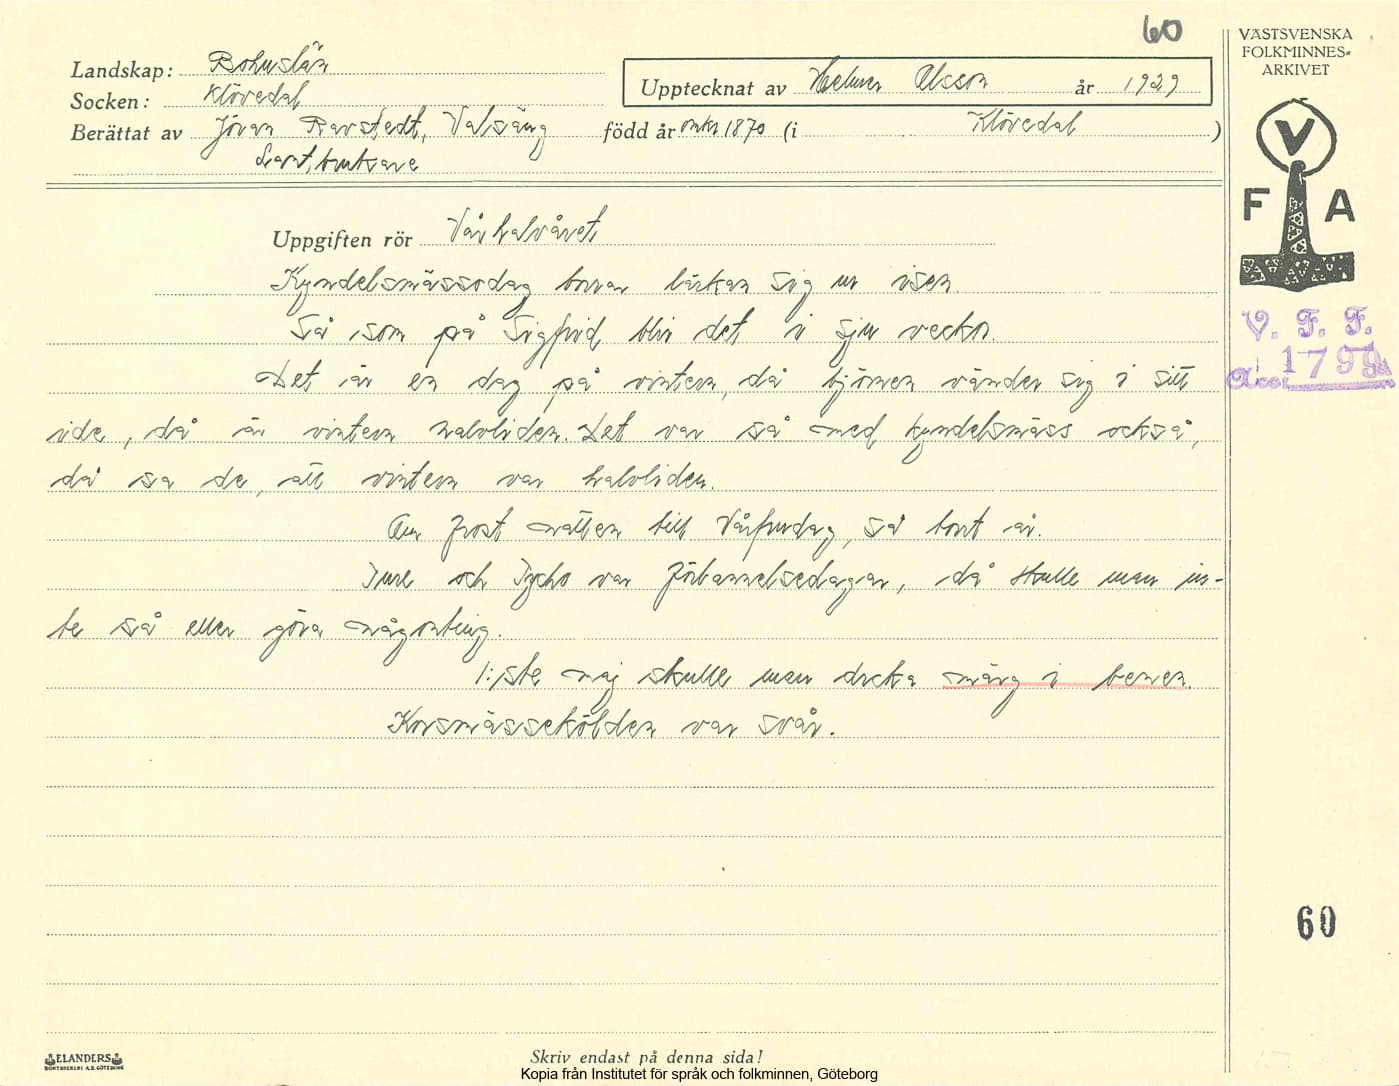 60
VÄSTSVENSKA
FOLKMINNES-
ARKIVET
Landskap: Bohuslän
Socken: Klövedal
Upptecknat av Helmer Olsson år 1929
Berättat av Jöran Ravstedt, Valsäng född år omkr 1870 (i Klövedal)
Lantbrukare
V
F A
Uppgiften rör Vårhalvåret
Kyndelsmässodag borrar lärkan sig ur isen
Så som på Sigfrid blir det i sju veckor.
Det är en dag på vintern, då björnen vänder sig i sitt
ide, då är vintern halvliden. Det var så med kyndelsmäss också,
då sa de, att vintern var halvliden.
Om frost natten till Vårfrudag, så bort är.
Ture och Tycho var förbannelsedagar, då skulle man in-
te så eller göra någonting.
1:ste maj skulle man dricka märg i benen.
Korsmässekölden var svår.
V. F. F.
Acc. 1799
60
ELANDERS
BOKTRYCKERI A.B. GÖTEBORG
Skriv endast på denna sida!
Kopia från Institutet för språk och folkminnen, Göteborg